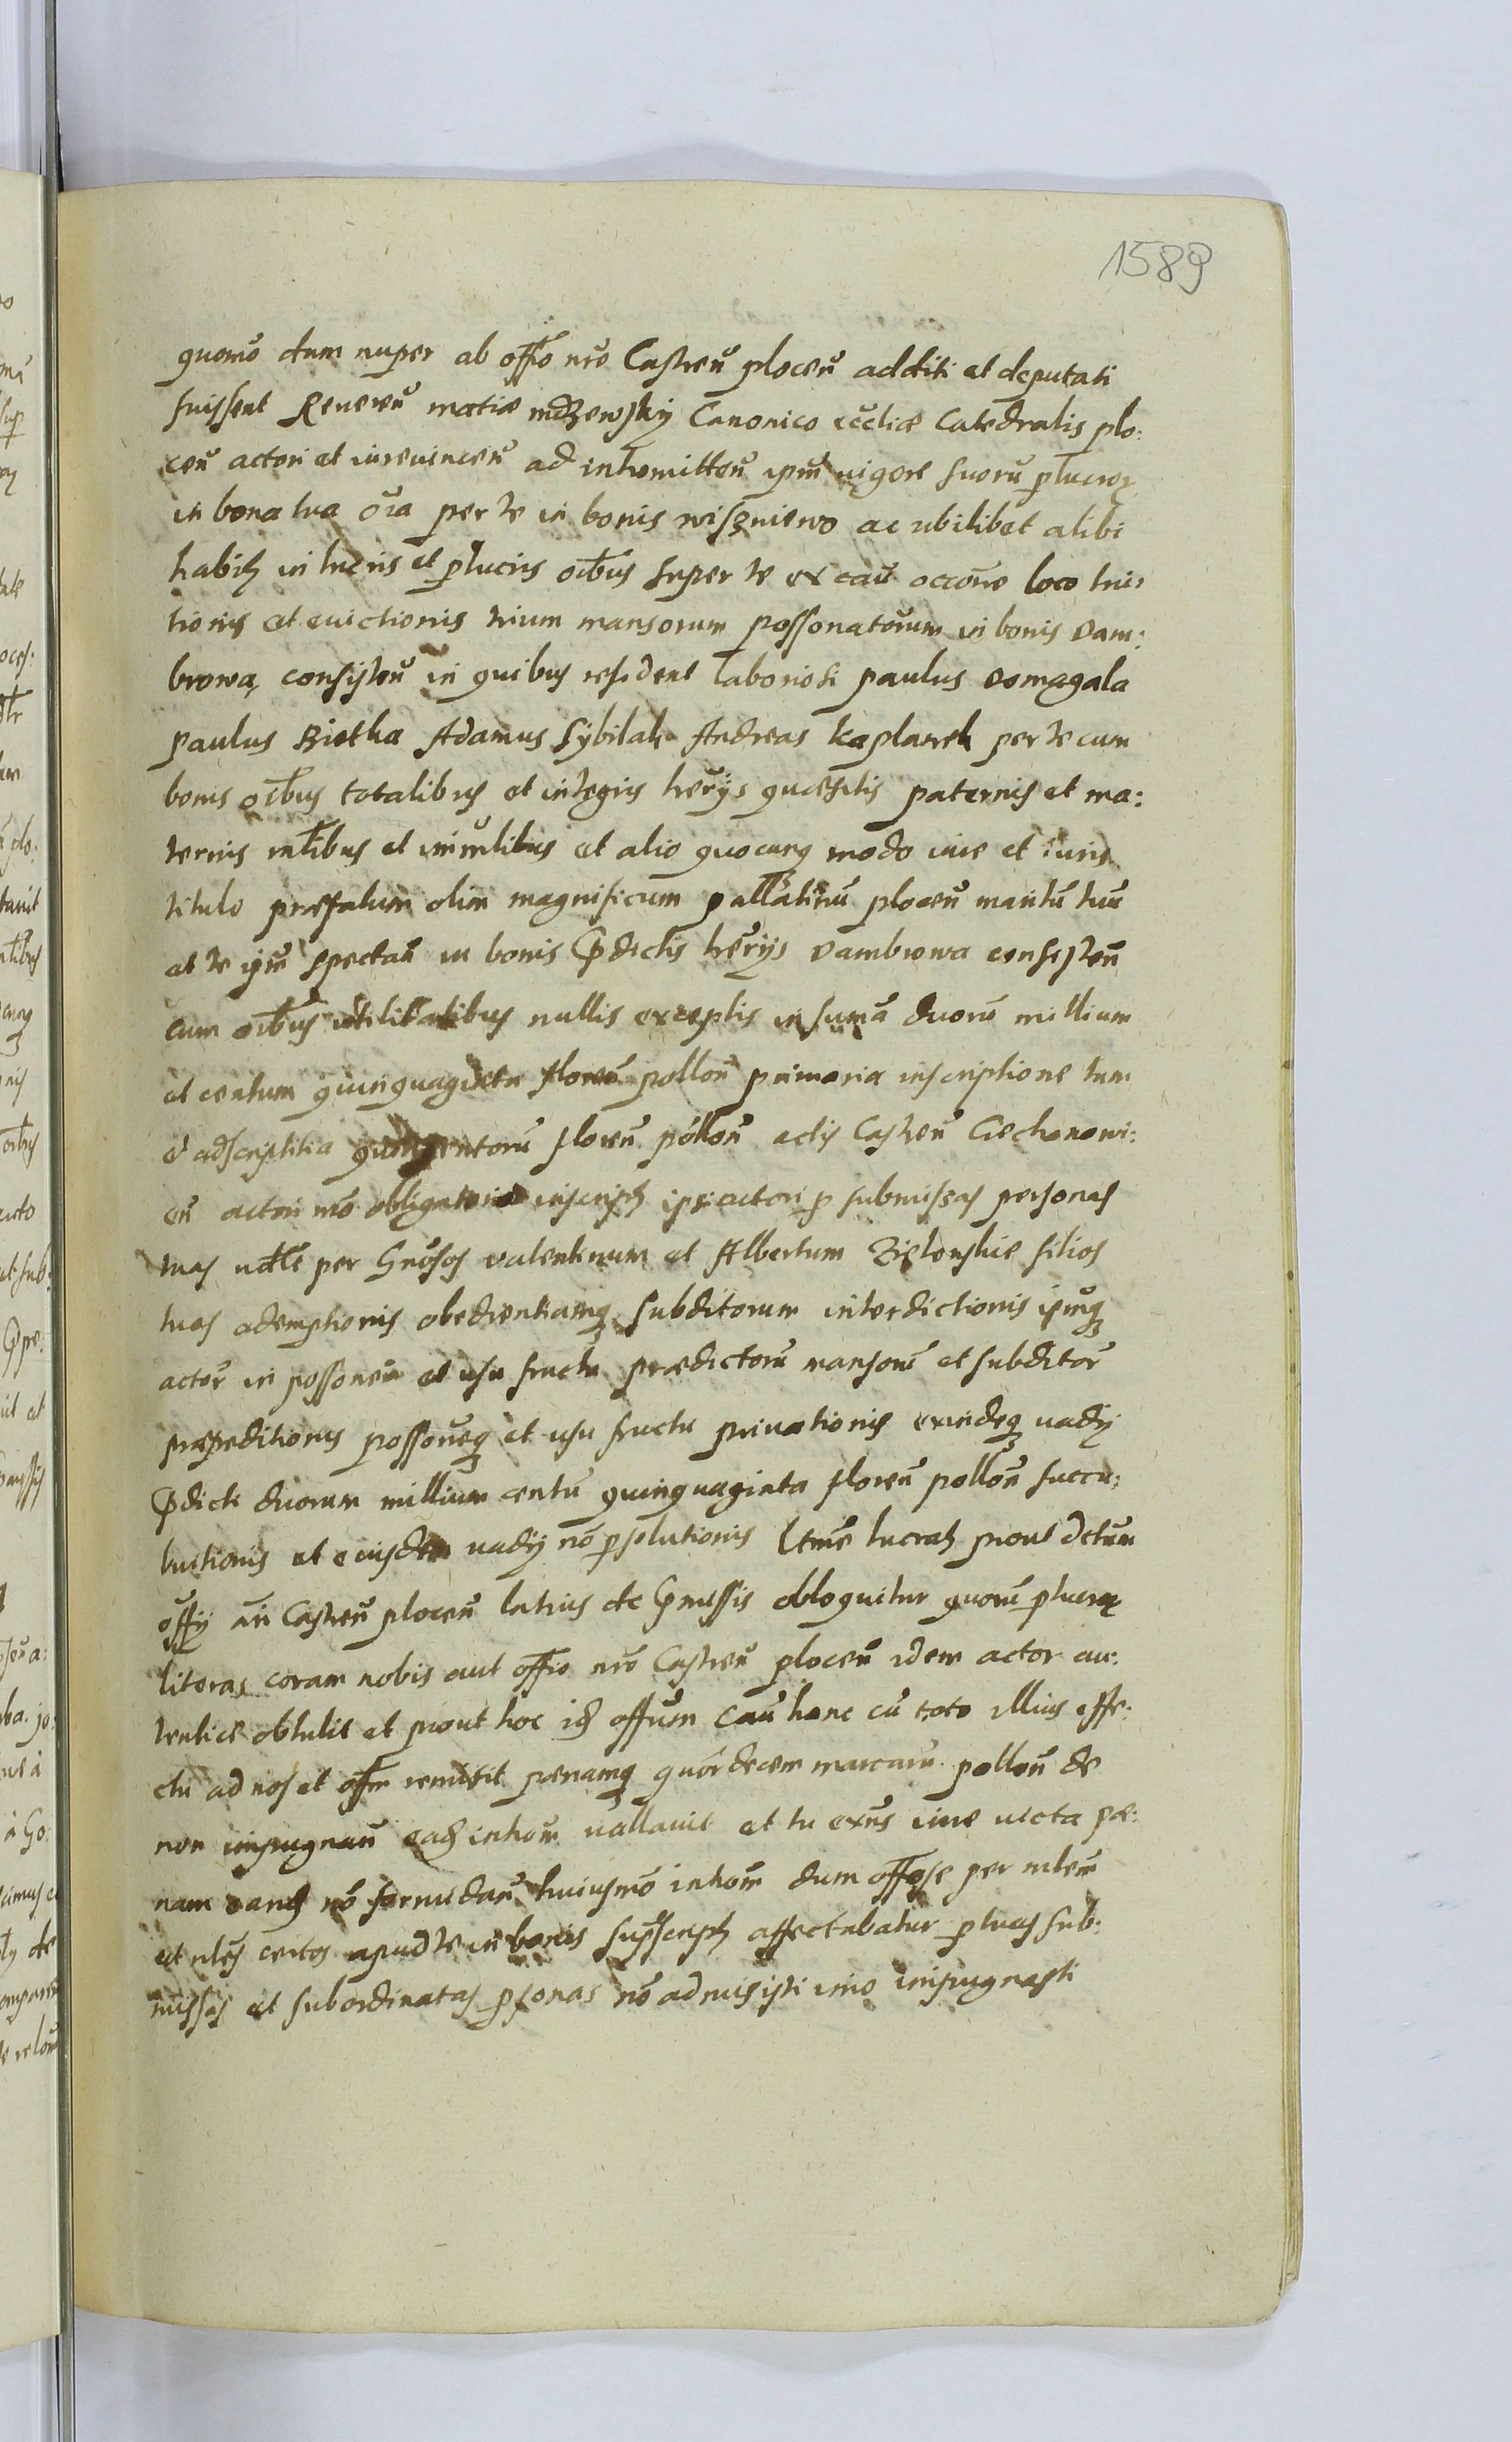 1589
quomō dum nuper ab offo nrō Castreñ ploceñ additi et deputati
fuissent Revereñ matiæ mdzewskij Canonico ecctiæ Catedralis plo:
ceñ actori et iurevinceñ ad intromitteñ ipm̃ vigore suorũ p̱lucror
in bona tua oĩa per te in bonis wiszniewo ac ubilibet alibi
habiȝ in lucris et p̱lucris oĩbus super te ex cau occoñe loco tui
tionis et evictionis trium mansorum possonatorum in bonis dam:
browa consisteñ in quibus resident laboriosi paulus domagala
paulus Bietka Adamus Sybilak Andreas kaplanek per te cum
bonis oĩbus totalibus et integris herijs quæsitis paternis et ma:
ternis mtĩbus et imm̃libus et alio quocunq modo iure et iuris
titulo præfatum olim magnificum pallatinũ ploceñ maritũ tuũ
et te ipm̃ spectañ in bonis p̱dictis herijs dambrowa consisteñ
cum oĩbus utilitatibus nullis exceptis in sum̃a duorũ millium
et centum quinquaginta floreñ polloñ primaria inscriptione tum
et adscriptitia quingentorũ floreñ polloñ actis Castreñ Ciechanowi:
eñ actori mõ obligatorio inscripȝ ipsi actori p̱ submissas personas
tuas per Gnosos valentinum et Albertum Zielonskie filios
tuos ademptionis obedientiamq subditorum interdictionis ipmq
actor̃ in possoneм et usu fructu prædictorũ mansorũ et subditor̃
præpeditionis possoneq et usu fructu privationis exindeq vadij
p̱dicti duorum millium centũ quinquaginta floreñ polloñ succu:
butionis et eiusdem vadij nõ p̱solutionis ltme lucraȝ prout dctum
offij nri Castreñ ploceñ latius de p̱missis obloquitur quorũ p̱lucror
literas coram nobis aut offio nrõ Castreñ ploceñ idem actor au:
tentice obtulit et prout hoc iđ offum cau hanc cũ toto illius effe:
ctu ad nos et offm remisit pænamq quõrdecem marcarũ polloñ de
non impugnañ eađ introm̃ vallavit et tu exñs iure victa pæ:
nam eandȝ nõ formidañ huiusmõ introm̃ dum offose per mlem̃
et nles certos apud te in bonis supscripȝ affectabatur p̱ tuas sub:
missas et subordinatas p̱sonas nõ admisisti imo impugnasti